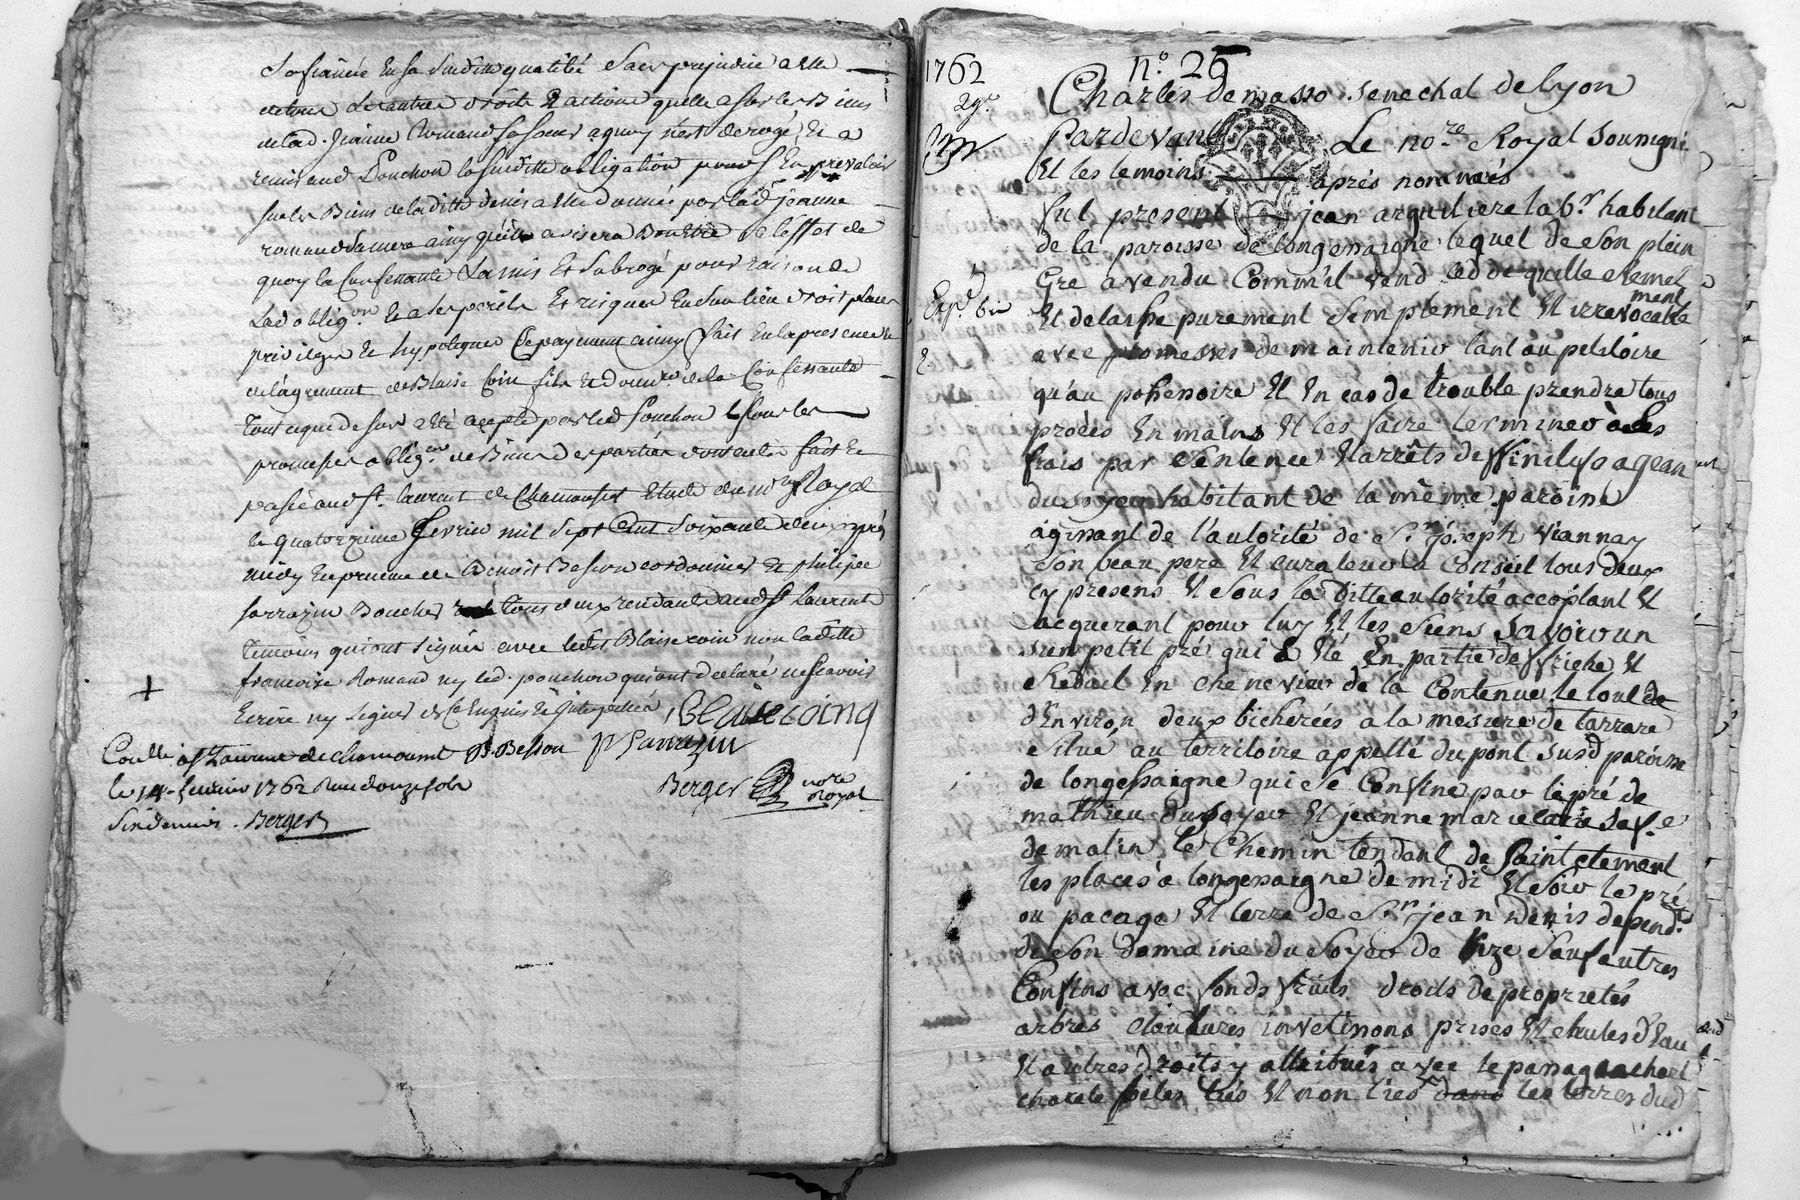 la fiancée en sa susditte qualité sans prejudice a elle
de tous les autres droits & actions quelle a sur les Biens
de lad. Jeanne Romand sa soeur a quoy n'est derogé, Et a
remis aud Ponchon la susditte obligation pour s'En prevaloir
sur les Biens de laditte a elle donnée par lad jeanne
romand sa mere ainsy qu'il avisera Bon Etre a l'effet de
quoy la Confessante L'a mis Et subrogé pour raison de
Lad oblig.on Et a ses perils Et risques En son lieu droit place
privilege Et hypoteque Ce payement ainsy fait En la presence
de l'agrement de Blaise Coin fils de la Confessante
Tout ce que dessus a eté accepté par led Ponchon & sous les
promesses oblig.on de Biens des parties dont acte fait et
passé aud St. laurent de Chamousset Etude du no.re Royal
le quatorzieme fevrier mil sept Cent soixante deux après
midy En presence de Benoit Besson cordonnier Et philipe
sarrazin Boucher tous deux aud St laurent
temoins qui ont signé avec ledit Blaise coin non laditte
francoise Romand ny led. ponchon qui ont declaré ne scavoir
Ecrire ny signer de Ce Enquis Et interpellés
Blaise coing
B. Besson P Sarrazin
Berger no.re Royal
+
Conllé a St Laurent de chamousset
le 14. fevrier 1762 Reçu douze sols
six deniers. Berger
1762
n.o 26
Charles Demasso senechal de lyon
Pardevant Le no.re Royal soussigné
Et les temoins après nommés
fut present jean arquilliere lab.r habitant
de la paroisse de longessaigne lequel de son plein
Gre a vendu Comm'il vend cedde quitte remet
Exp.é
Et delaisse purement simplement Et irrevocablement
avec promesses de maintenir tant au petitoire
qu'au possessoire Et En cas de trouble prendre tous
procès En mains Et les faire terminer à ses
frais par sentence Et arrêts deffinitifs a jean
dussoyer habitant de la même paroisse
agissant de l'autorité de S.r joseph viannay
son beau pere Et curateur a Conseil tous deux
cy presens Et sous la ditte autorité acceptant Et
acquerant pour luy Et les siens sçavoir un
un petit pré qui a Eté En partie de friche Et
En cheneviere de la Contenue le tout de
d'Environ deux bicherées a la mesure de tarrare
situé au territoire appellé du pont susd paroisse
de longessaigne qui se Confine par le pré de
mathieu dussoyer Et jeanne marie sa f.e
de matin, le Chemin tendant de saint clement
les places a longessaigne de midi Et soir le pré
ou pacage Et terre de S.r jean denis depend.t
de son domaine du soyer de bize sauf autres
Confins avec fonds fruits droits de proprietés
arbres clotures investisons prises Et chutes d'Eau
Et autres droits y attribués avec le passage a char
charette bêtes liés Et non liés dans les terres dud